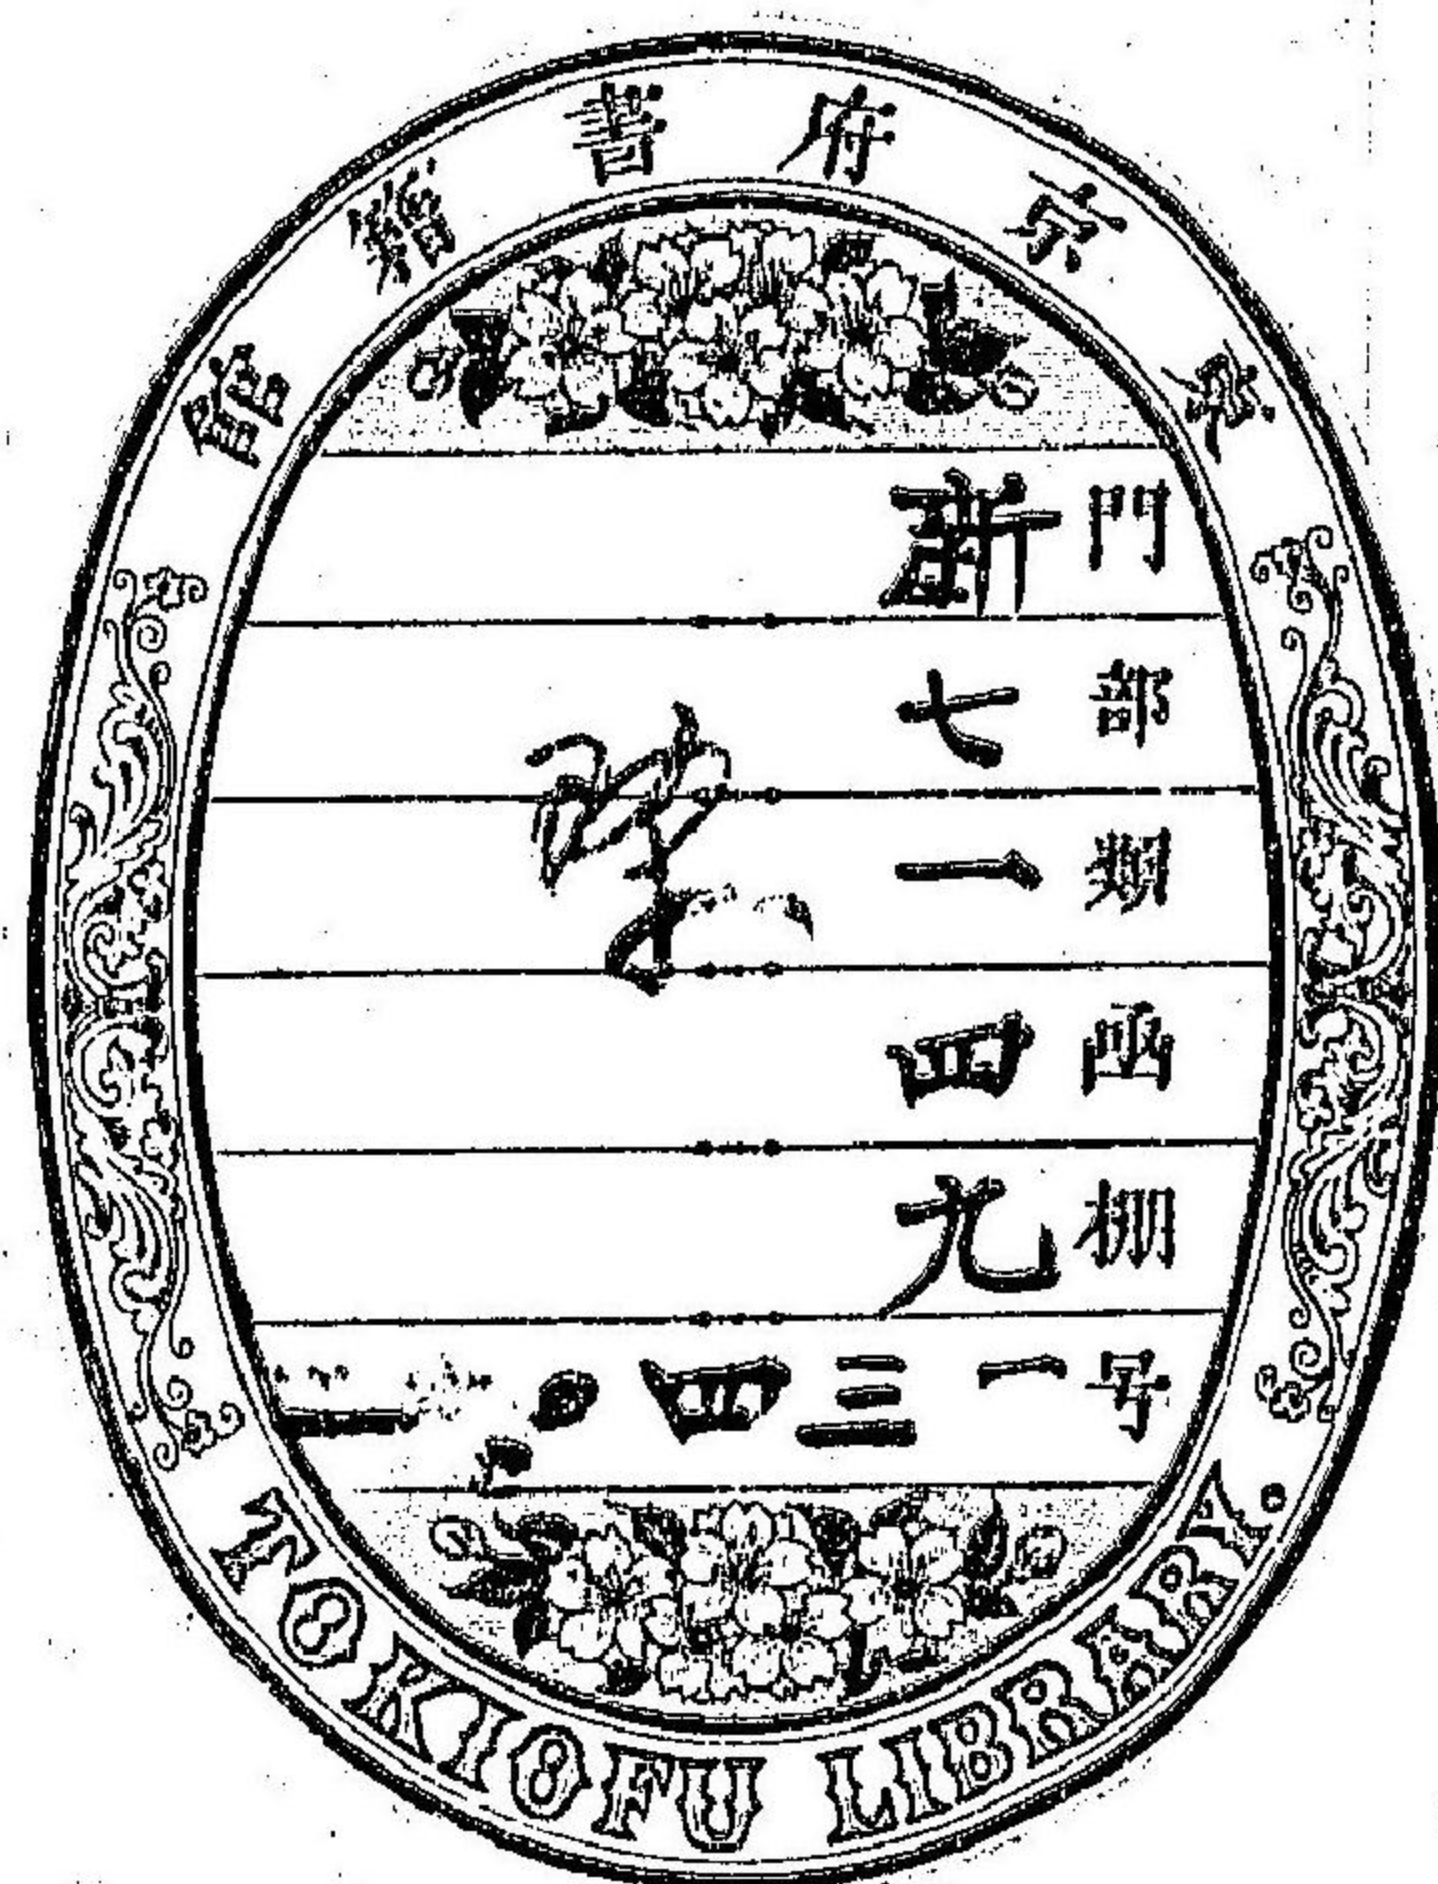 東京府書籍館
門 新
部 七
類 一
函 四
棚 九
号 一三四
TOKIOFU LIBRARY.